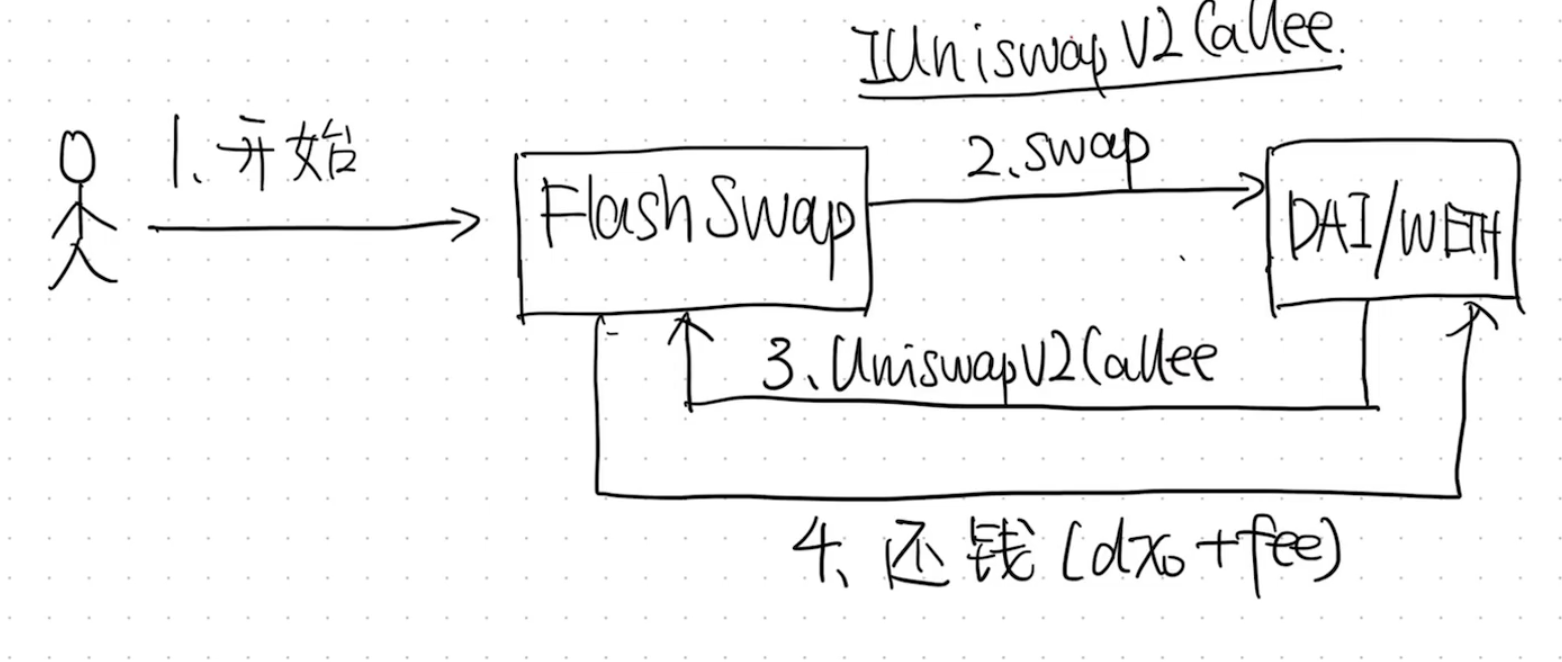 IUniswapV2Callee.
1.开始
2、swap
FlashSwap
DAI/WETH
3、UniswapV2Callee
4、还钱(dx₀+fee)